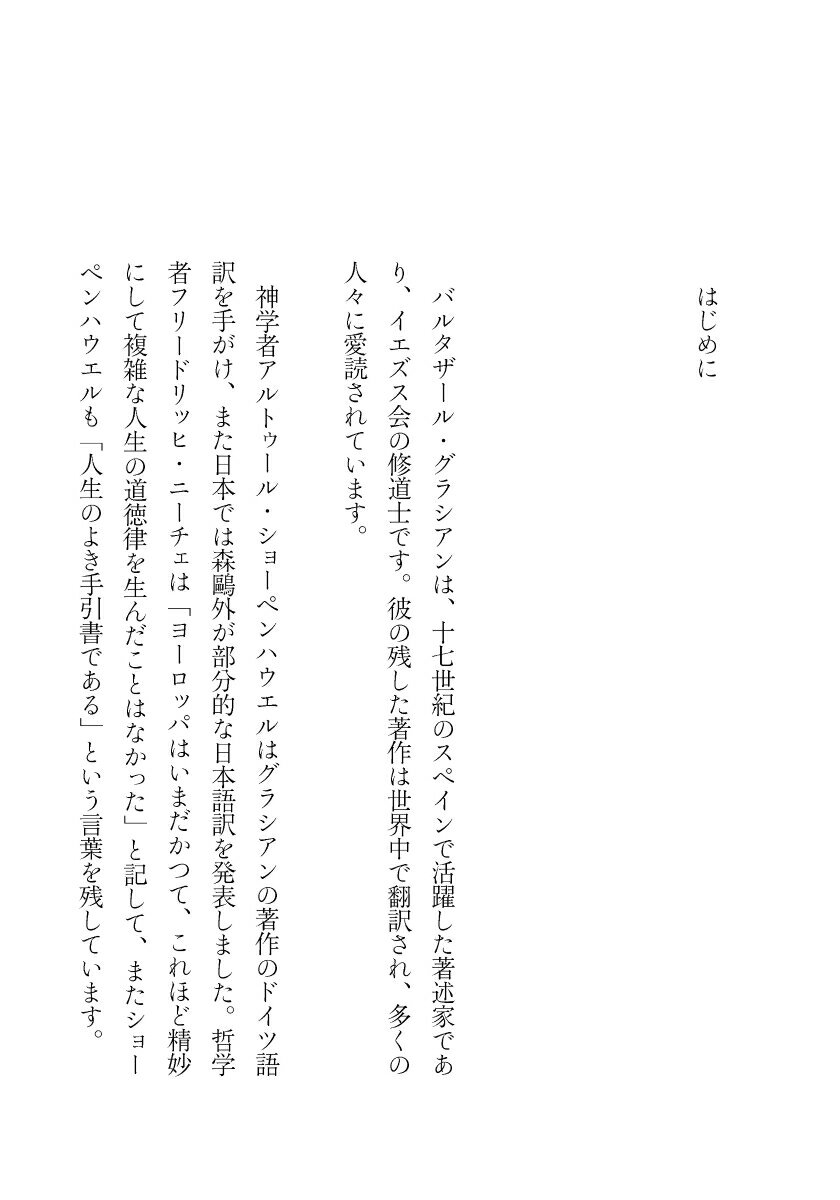 はじめに
バルタザール・グラシアンは、十七世紀のスペインで活躍した著述家であ
り、イエズス会の修道士です。彼の残した著作は世界中で翻訳され、多くの
人々に愛読されています。
神学者アルトゥール・ショーペンハウエルはグラシアンの著作のドイツ語
訳を手がけ、また日本では森鷗外が部分的な日本語訳を発表しました。哲学
者フリードリッヒ・ニーチェは「ヨーロッパはいまだかつて、これほど精妙
にして複雑な人生の道徳律を生んだことはなかった」と記して、またショー
ペンハウエルも「人生のよき手引書である」という言葉を残しています。